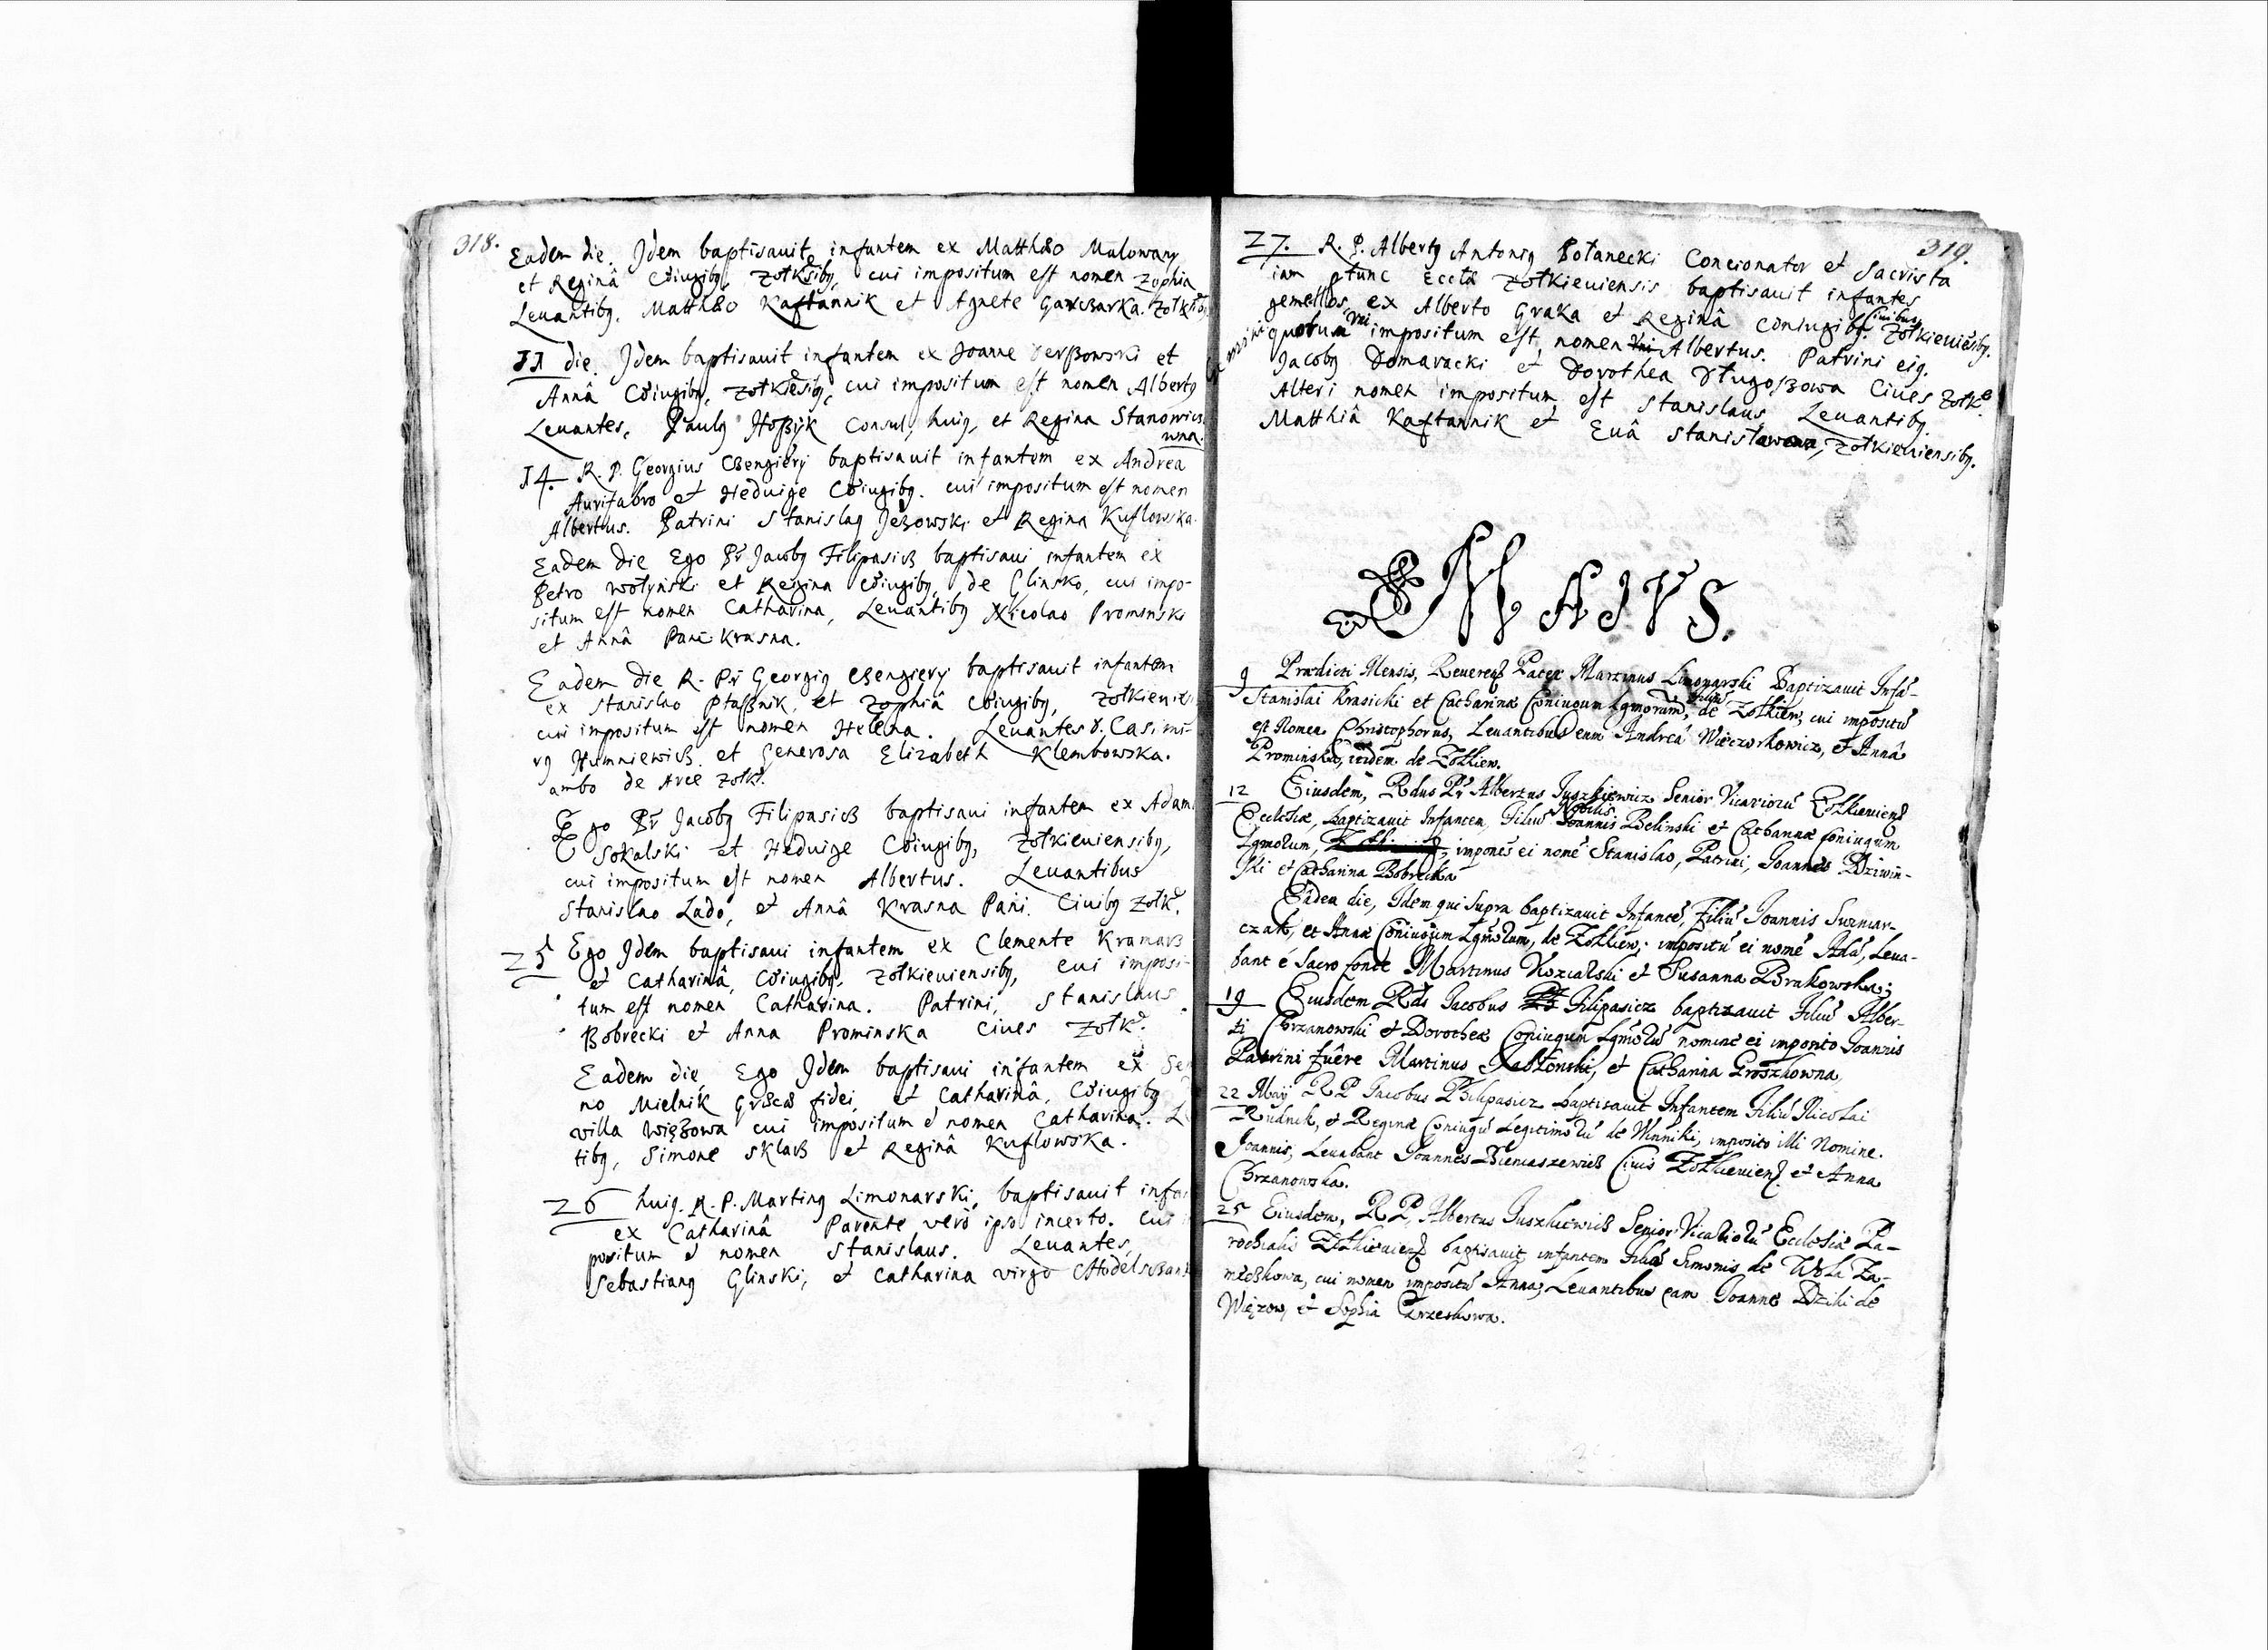 318.
Eadem die. Idem baptisauit infantem ex Matthæo Malowany
et Reginâ Cõiugibg, Zołkĕsibg, cui impositum est nomen Zophia
Leuantibg. Matthæo Kaftannik et Agnete Garcƶarka.
11 die. Idem baptisauit infantem ex Joanne et
Annâ Cõiugibg, Zołkiĕsibg, cui impositum est nomen Albertg
Leuantes, Paulg Consul, huig, et Regina Stanowicz
wna.
14. R. P. Georgius baptisauit infantem ex Andrea
Aurifabro et Heduige Cõiugibg. cui impositum est nomen
Albertus. Patrini Stanislag Jeƶowski et Regina Kuflowska.
Eadem die Ego Pr̃ Jacobg Filipasicƶ baptisaui infantem ex
Petro Wołynski et Regina Cõiugibg, de Glinsko, cui impo-
situm est nomen Catharina, Leuantibg Nicolao Prominski
et Annâ Pani Krasna.
Eadem die R. Pr̃ Georgig baptisauit infantem
ex Stanislao Ptasƶnik, et Zophiâ Cõiugibg, Zołkieui
cui impositum est nomen Helena. Leuantes G. Casimi-
rg Humniewicƶ et Generosa Elizabeth Klembowska.
ambo de Arce Zołk.
Ego Pr̃ Jacobg Filipasicƶ baptisaui infantem ex Adam
Sokalski et Heduige Cõiugibg, Zołkieuiensibg,
cui impositum est nomen Albertus. Leuantibus
Stanislao Lado, et Annâ Krasna Pani. Ciuibg Zołk.
25 Ego Idem baptisaui infantem ex Clemente Kramarƶ
et Catharinâ, Cõiugibg. Zołkieuiensibg, cui imposi-
tum est nomen Catharina. Patrini, Stanislaus
Bobrecki et Anna Prominska Ciues Zołk.
Eadem die, Ego Idem baptisaui infantem ex
no Mielnik Græcæ fidei, et Catharinâ, Cõiugibg
villa Więƶowa cui impositum ẽ nomen Catharina. L
tibg, Simone Sklarƶ et Reginâ Kuflowska.
26 huig. R. P. Marting Limonarski, baptisauit infa
ex Catharinâ Parente verò ipso incerto. cui
positum ẽ nomen Stanislaus. Leuantes,
Sebastiang Glinski, et Catharina virgo
319.
27. R. P. Albertg Antonig Potanecki Concionator et Sacrista
iam ptunc Eccłæ Zołkieuiensis baptisauit infantes
gemellos, ex Alberto Graka et Reginâ Coniugibg. Ciuibus Zołkieuiĕsibg.
quorum vni impositum est, nomen Albertus. Patrini eig.
Jacobg Domaracki et Dorothea Długosƶowa Ciues Zołk.
Alteri nomen impositum est Stanislaus, Leuantibg
Matthiâ Kaftannik et Euâ Stanisławowa, Zołkieuiensibg.
MAIVS.
9 Prædicti Mensis, Reuerend Pater Martinus Limonarski Baptizauit Infã-
Stanislai Krasicki et Catharinæ Coniugum Lgmorum, filiũ de Zołkiew, cui impositũ
est Nomen Christophorus, Leuantibus eum Andreâ Wieczorkowicz, et Annâ
Prominska, itidem de Zołkiew.
12 Eiusdem, Rdus Pr̃ Albertus Juszkiewicz Senior Vicariorũ Zolkieuiens
Ecclesiæ, baptizauit Infantem, filiũ Nobilis Joannis Belinski et Catharinæ Coniugum
Lgmorum, imponẽs ei nomẽ Stanislao, Patrini, Joannes Dziwin-
ski et Catharina Bobrecka
Eâdem die, Idem qui supra baptizauit Infantẽ, filiũ Joannis Suzniar-
czak, et Annæ Coniugum Lgmorum, de Zołkiew, impositũ ei nomẽ Adã, Leua-
bant é Sacro fonte Martinus Kozialski et Susanna Brakowska;
19 Eiusdem Rds Jacobus Filipasicz baptizauit Filiũ Alber-
ti Chrzanowski et Dorotheæ Coniugum Lgmorũ nomine ei imposito Joannis
Patrini fuêre Martinus Jabłonski, et Catharina Groszkowna
22 Maij R P Jacobus Philipasicz baptizauit Infantem Filiũ Nicolai
Rudnik, et Reginæ Coniugũ Legitimorũ de Winniki, imposito illi Nomine.
Joannis, Leuabant Joannes Bieniaszewicƶ Ciuis Zołkieuiens et Anna
Chrzanowska.
25 Eiusdem, R P, Albertus Juszkiewicƶ Senior Vicariorũ Ecclesiæ Pa-
rochialis Zolkieuiens baptisauit infantem filiã Simonis de Wola Za-
młeckowa, cui nomen impositũ Anna, Leuantibus eam Joanne Dziki de
Więzow, et Sophia Grzeskowa.